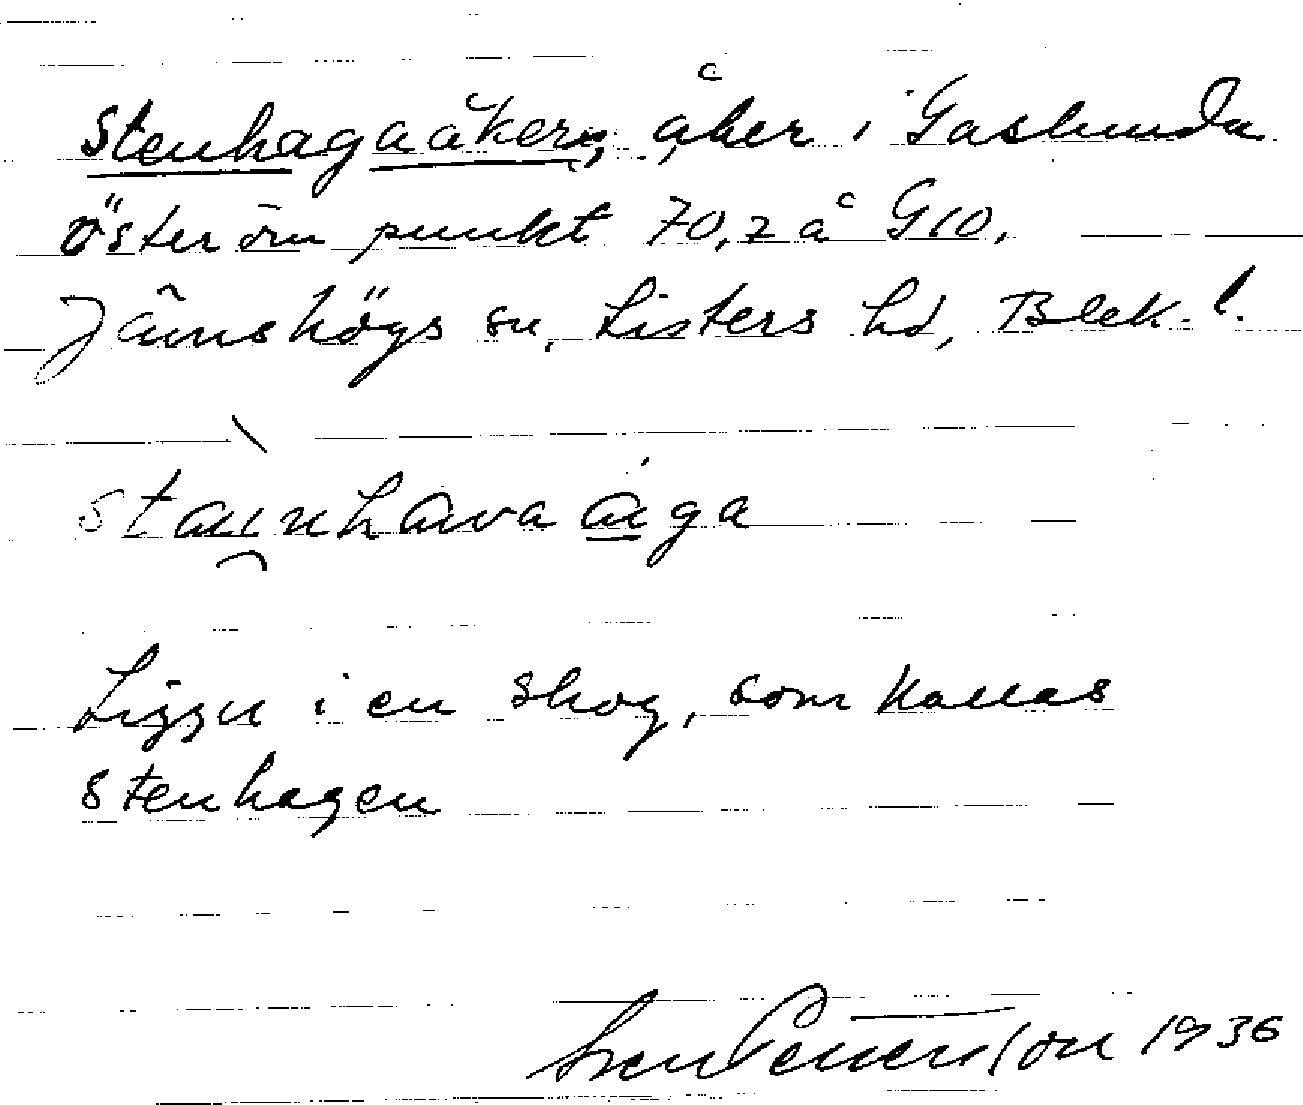 Stenhagaåkern, åker i Gaslunda
öster om punkt 70,2 å G10,
Jämshögs sn, Listers hd, Blek. l.
Ligger i en skog, som kallas
Stenhagen
Sven Petterson 1936